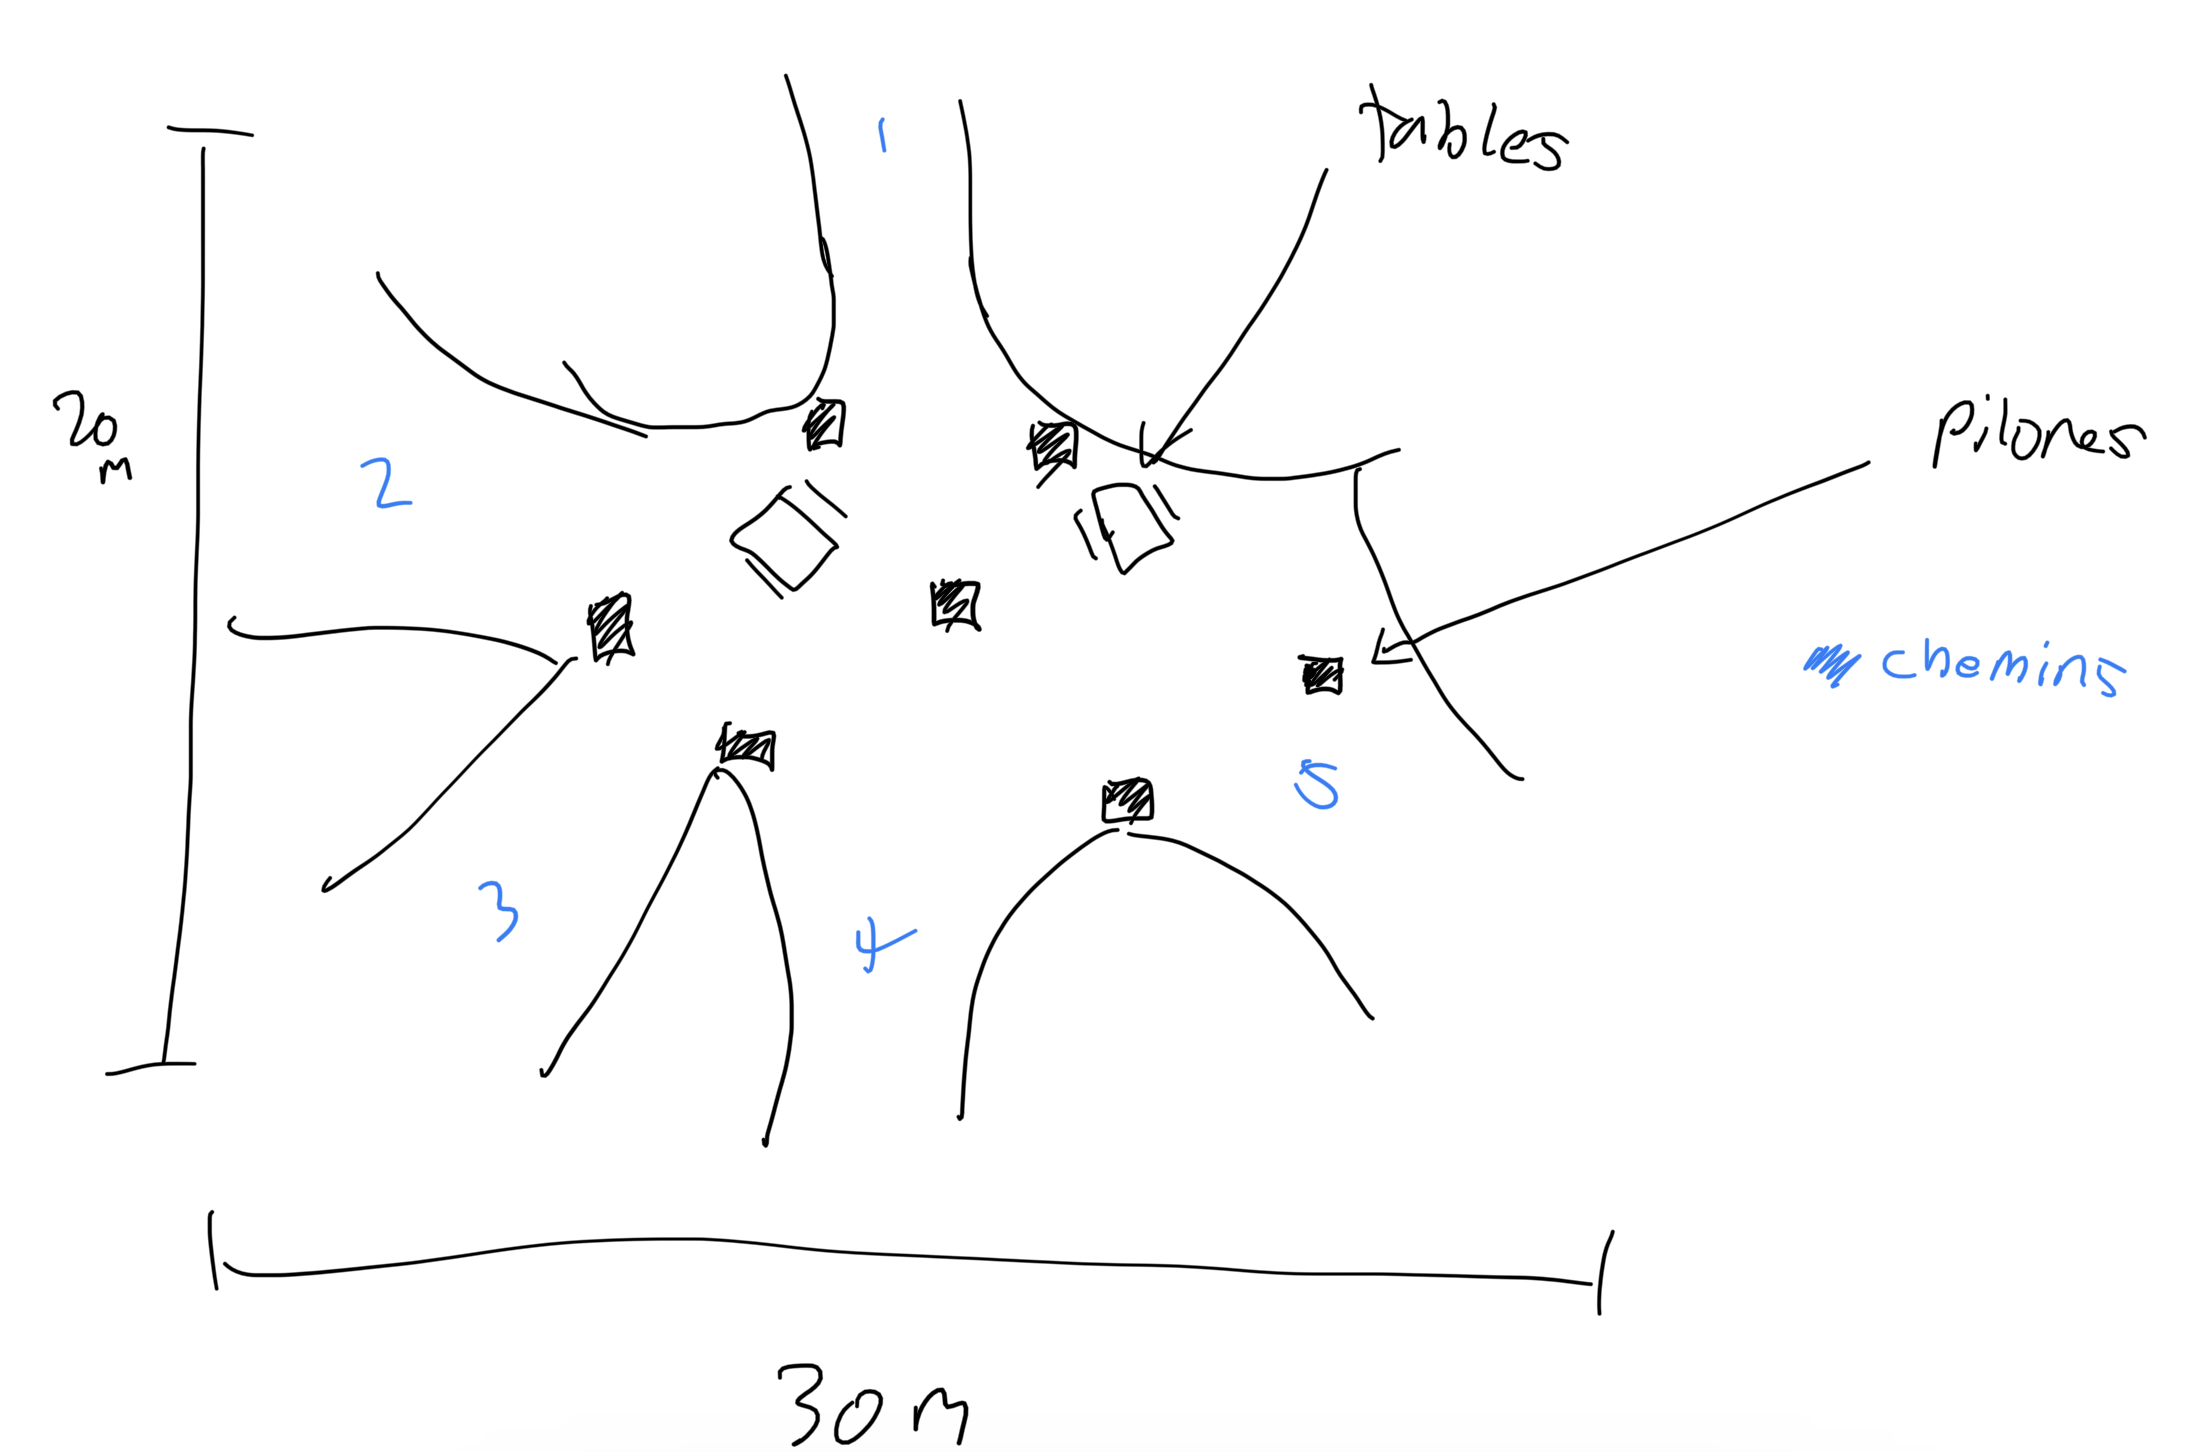 1
tables
20
m
Pilones
2
chemins
5
3
4
30 m